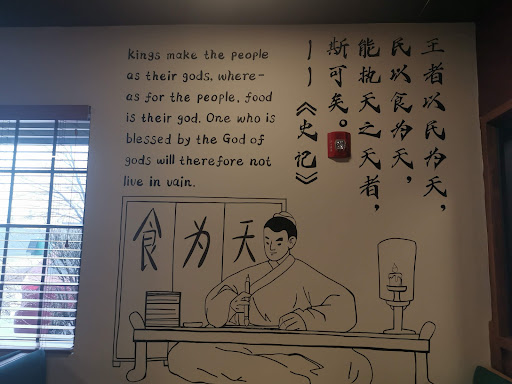 kings make the people
as their gods, where-
as for the people, food
is their god. One who is
blessed by the God of
gods will therefore not
live in vain.
王者以民为天，
民以食为天，
能执天之天者，
斯可矣。
——《史记》
食为天